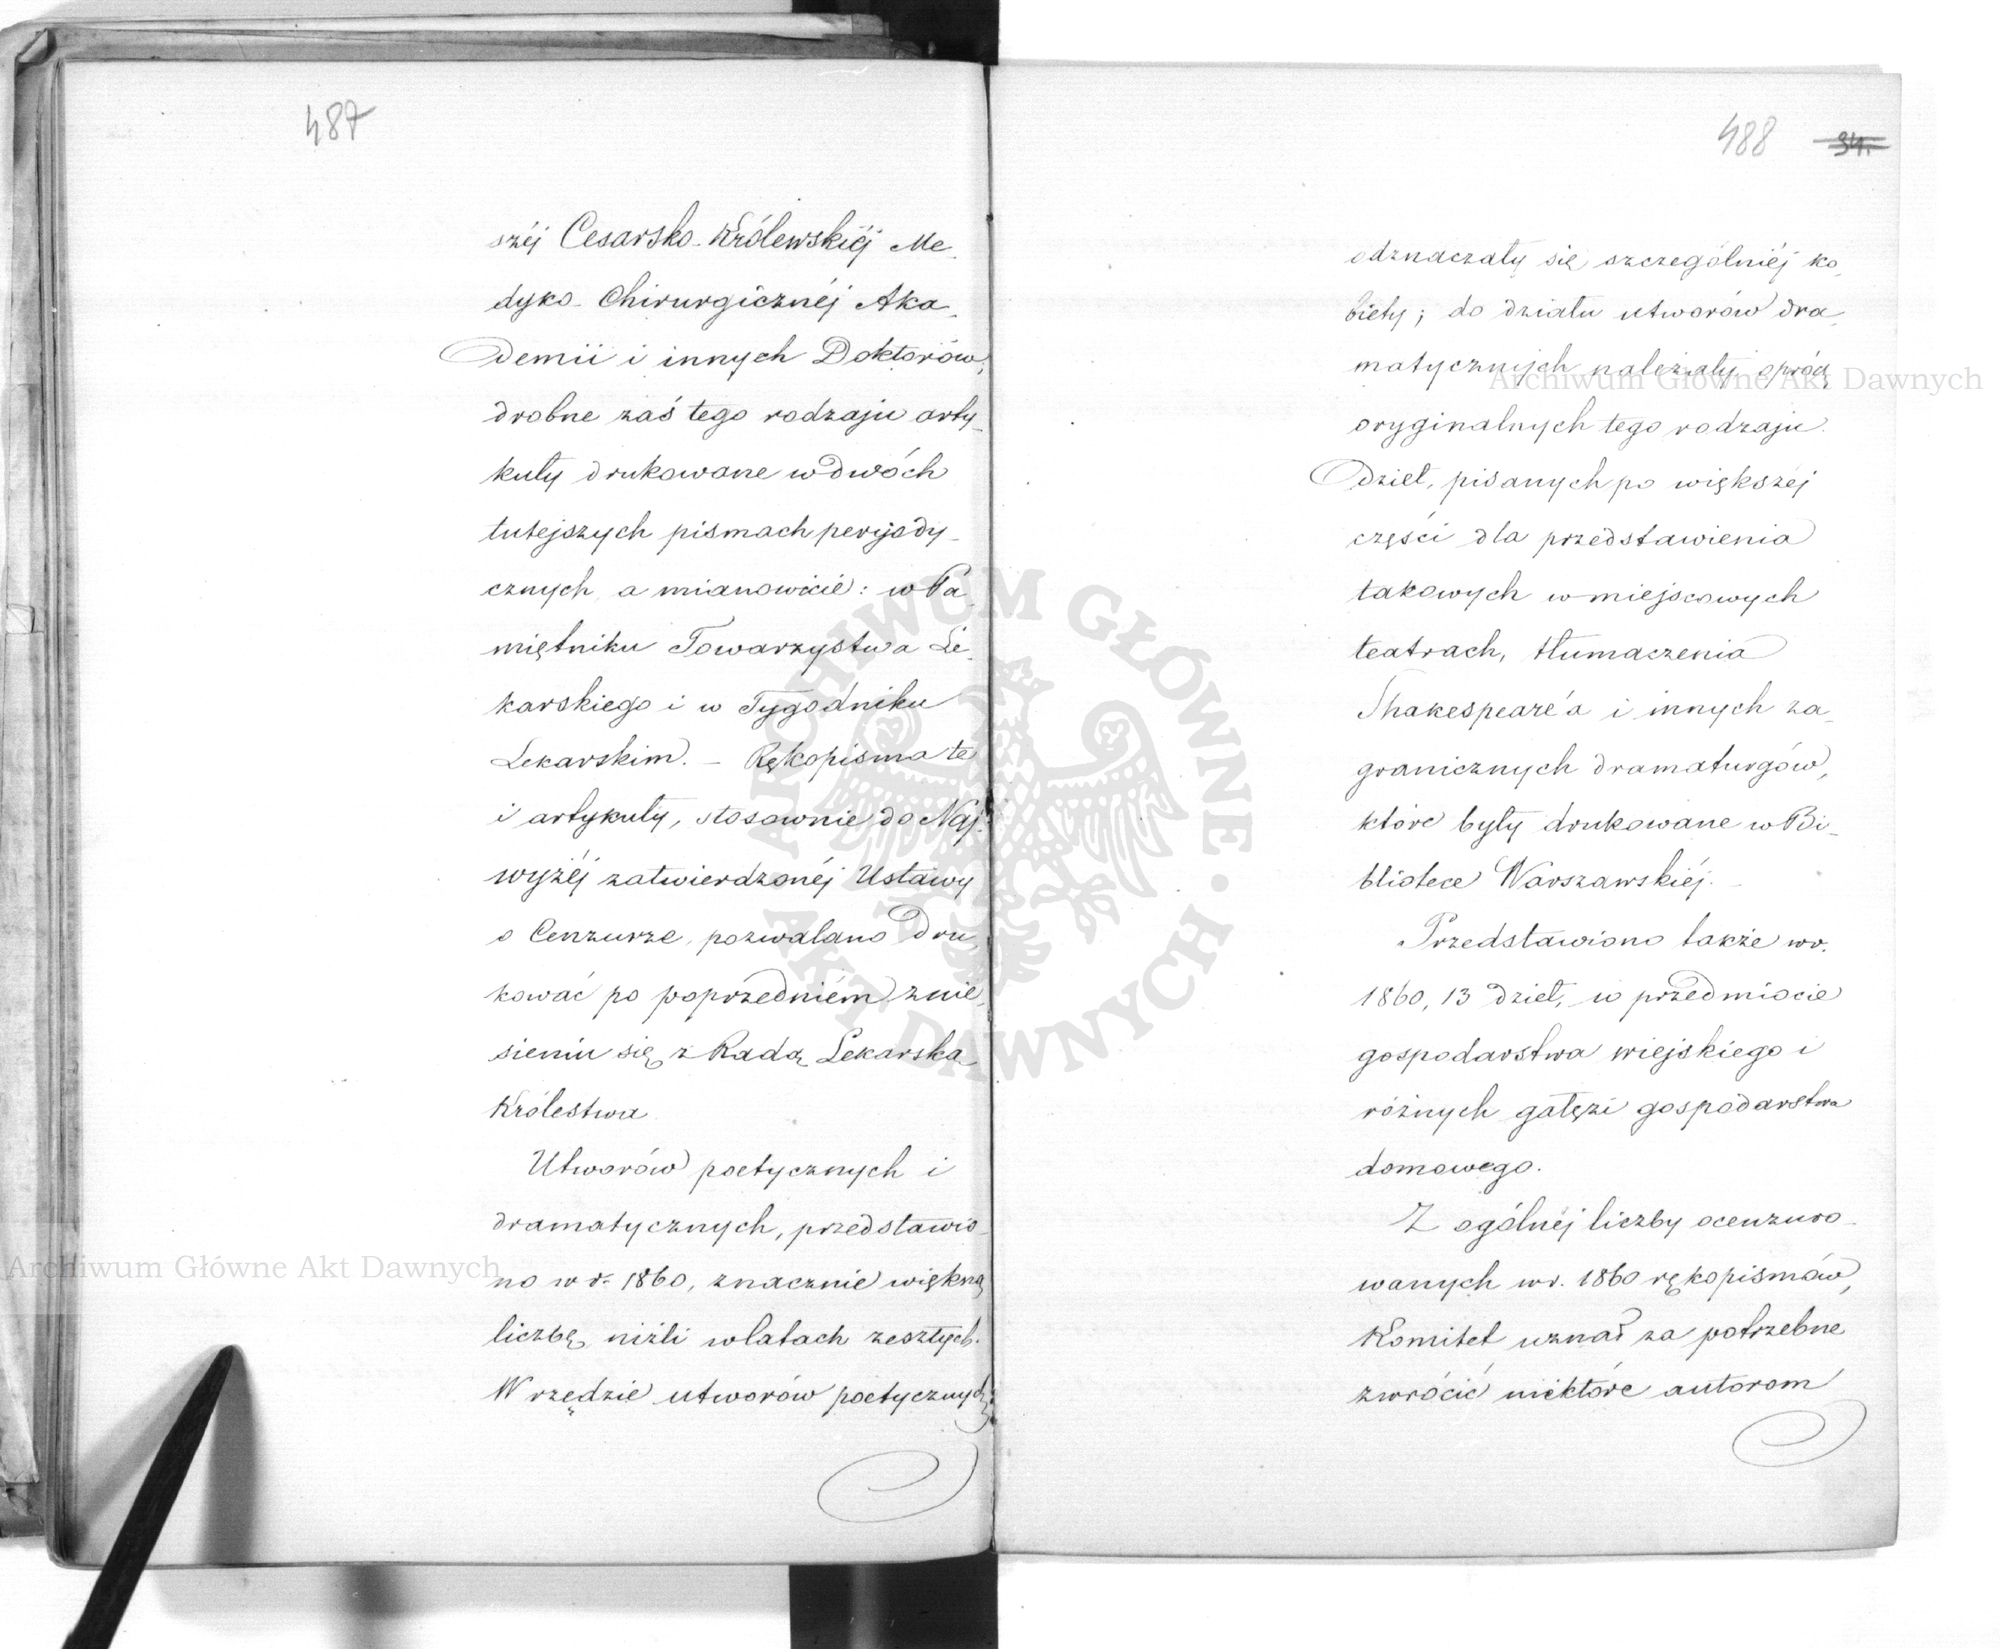 487
széj Cesarsko-Królewskiéj Me-
dyko-Chirurgicznéj Aka-
demii i innych Doktorów;
drobne zaś tego rodzaju arty-
kuły drukowane w dwóch
tutejszych pismach peryjody-
cznych, a mianowicie: w Pa-
miętniku Towarzystwa Le-
karskiego i w Tygodniku
Lekarskim. – Rękopisma te
i artykuły, stosownie do Naj-
wyżéj zatwierdzonéj Ustawy
o Cenzurze, pozwalano dru-
kować po poprzedniém znie-
sieniu się z Radą Lekarską
Królestwa.
Utworów poetycznych i
dramatycznych, przedstawio-
no w r. 1860, znacznie większą
liczbę, niżli w latach zeszłych.
W rzędzie utworów poetycznych,
488 34.
odznaczały się szczególniéj ko-
biety; do działu utworów dra-
matycznych należały oprócz
oryginalnych tego rodzaju
dzieł, pisanych po większéj
części dla przedstawienia
takowych w miejscowych
teatrach, tłumaczenia
Shakespeare'a i innych za-
granicznych dramaturgów,
które były drukowane w Bi-
bliotece Warszawskiéj. –
Przedstawiono także w r.
1860, 13 dzieł, w przedmiocie
gospodarstwa wiejskiego i
różnych gałęzi gospodarstwa
domowego.
Z ogólnéj liczby ocenzuro-
wanych w r. 1860 rękopismów,
Komitet uznał za potrzebne
zwrócić niektóre autorom
Archiwum Główne Akt Dawnych
Archiwum Główne Akt Dawnych
ARCHIWUM GŁÓWNE AKT DAWNYCH